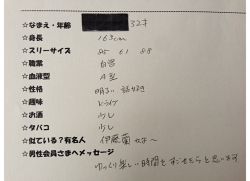 ☆なまえ・年齢 32才
☆身長 163cm
☆スリーサイズ 85 61 88
☆職業 自営
☆血液型 A型
☆性格 明るい 話好き
☆趣味 ドライブ
☆お酒 少し
☆タバコ 少し
☆似ている?有名人 伊藤蘭かな〜
☆男性会員さまへメッセージ
ゆっくり楽しい時間をすごせたらと思います